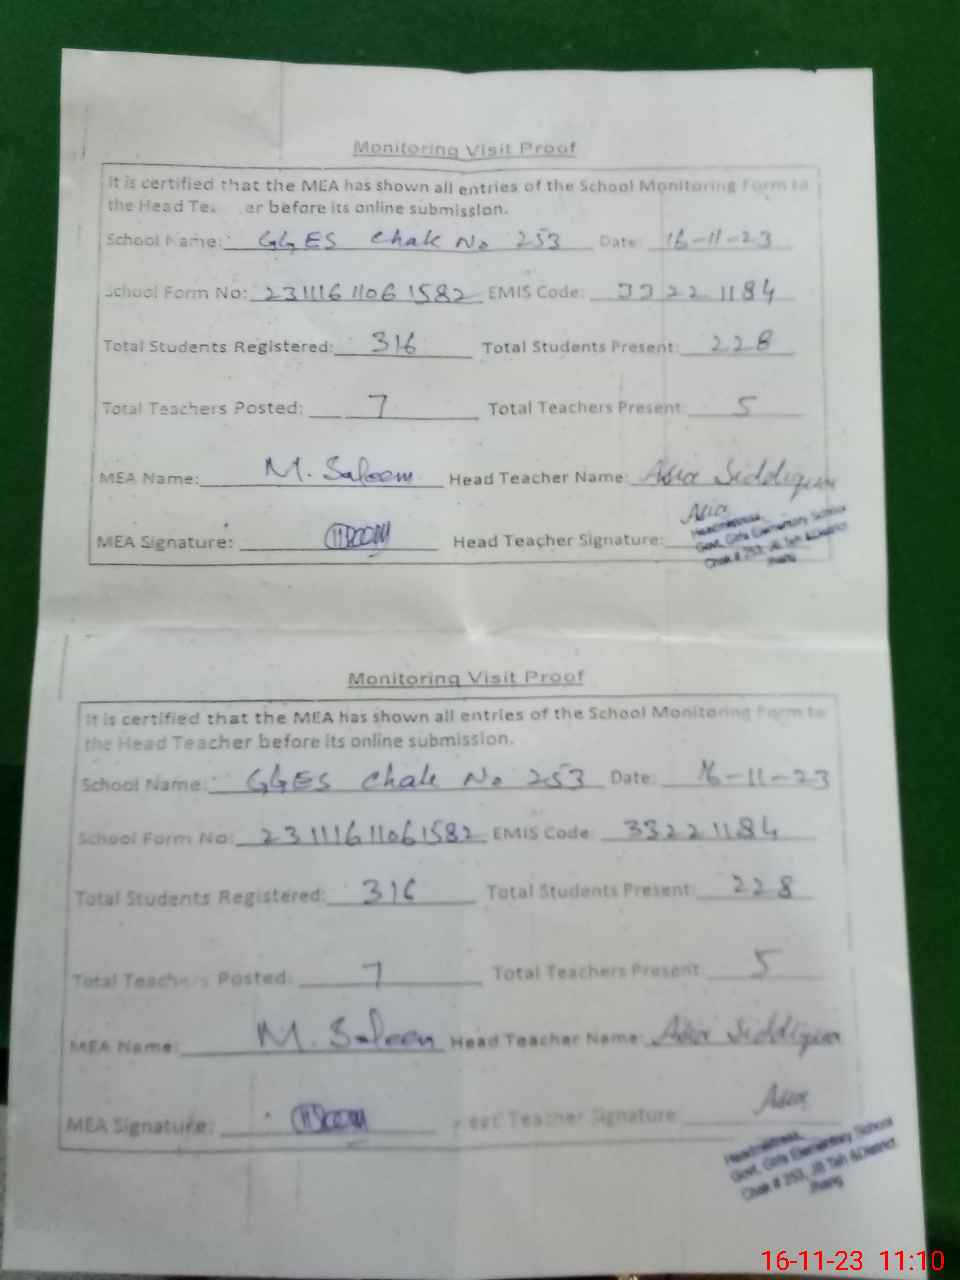 Monitoring Visit Proof
It is certified that the MEA has shown all entries of the School Monitoring Form to
the Head Te. er before its online submission.
School Name: GGES Chak No 253 Date: 16-11-23
School Form No: 231116 1106 1582 EMIS Code: 33221184
Total Students Registered: 316 Total Students Present: 228
Total Teachers Posted: 7 Total Teachers Present: 5
MEA Name: M. Saleem Head Teacher Name: Asia Siddiqua
MEA Signature: Head Teacher Signature: Asia
Headmistress
Govt. Girls Elementary School
Chak # 253, JB Teh &District
Jhang
Monitoring Visit Proof
It is certified that the MEA has shown all entries of the School Monitoring Form to
the Head Teacher before its online submission.
School Name: GGES Chak No 253 Date: 16-11-23
School Form No: 231116 11061582 EMIS Code: 33221184
Total Students Registered: 316 Total Students Present: 228
Total Teachers Posted: 7 Total Teachers Present: 5
MEA Name: M. Saleem Head Teacher Name: Asia Siddiqua
MEA Signature: Teacher Signature: Asia
Headmistress
Govt. Girls Elementary School
Chak # 253, JB Teh &District
Jhang
16-11-23 11:10